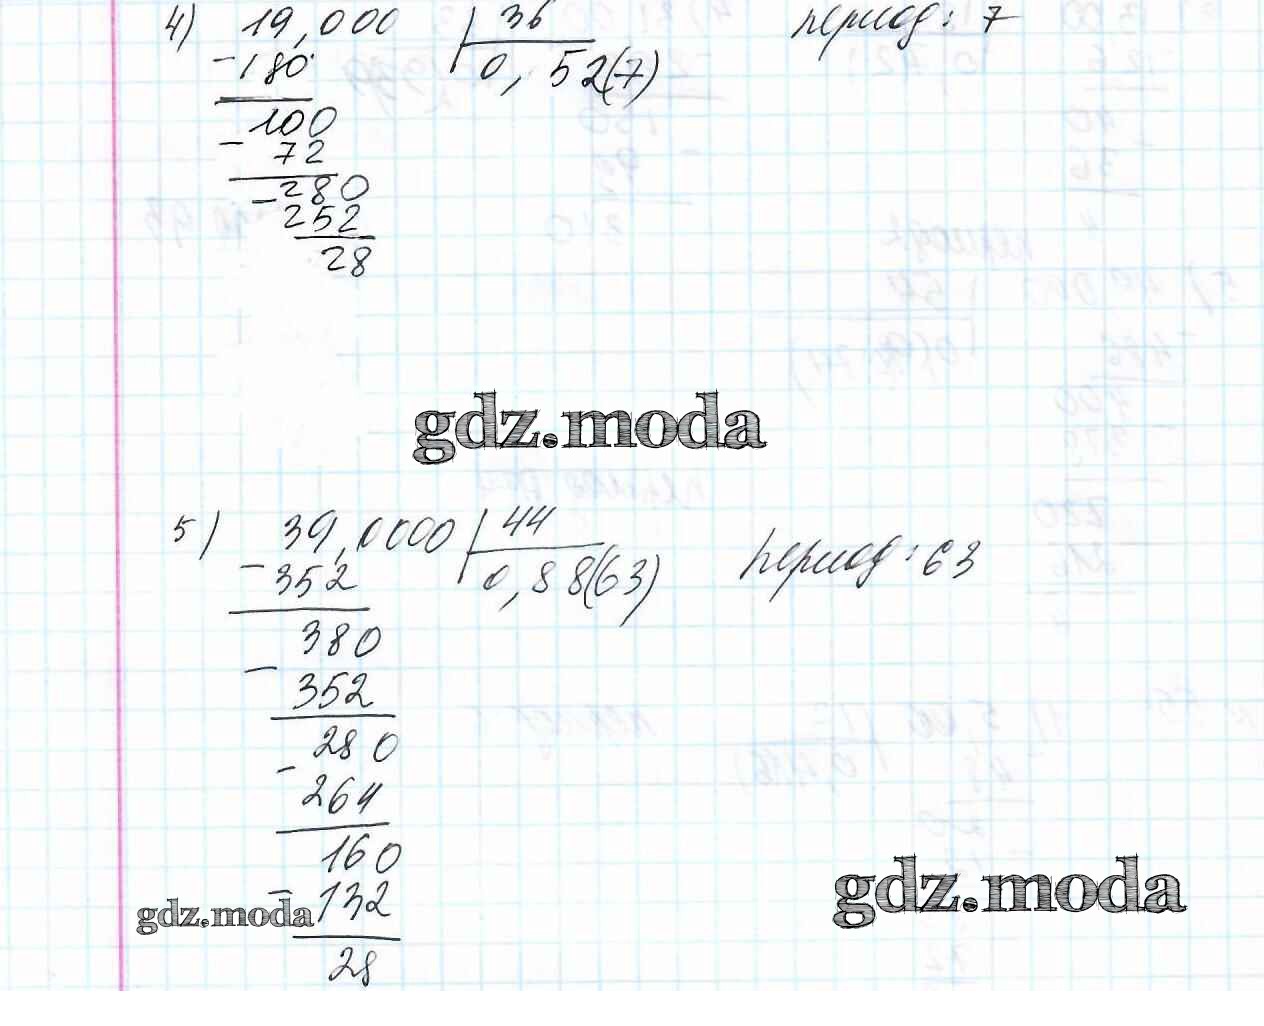 4) 19,000 36 период: 7
-180 0,52(7)
100
- 72
280
- 252
28
gdz.moda
5) 39,0000 44
- 352 0,88(63) период: 63
380
- 352
280
- 264
160
- 132
gdz.moda
gdz.moda
28